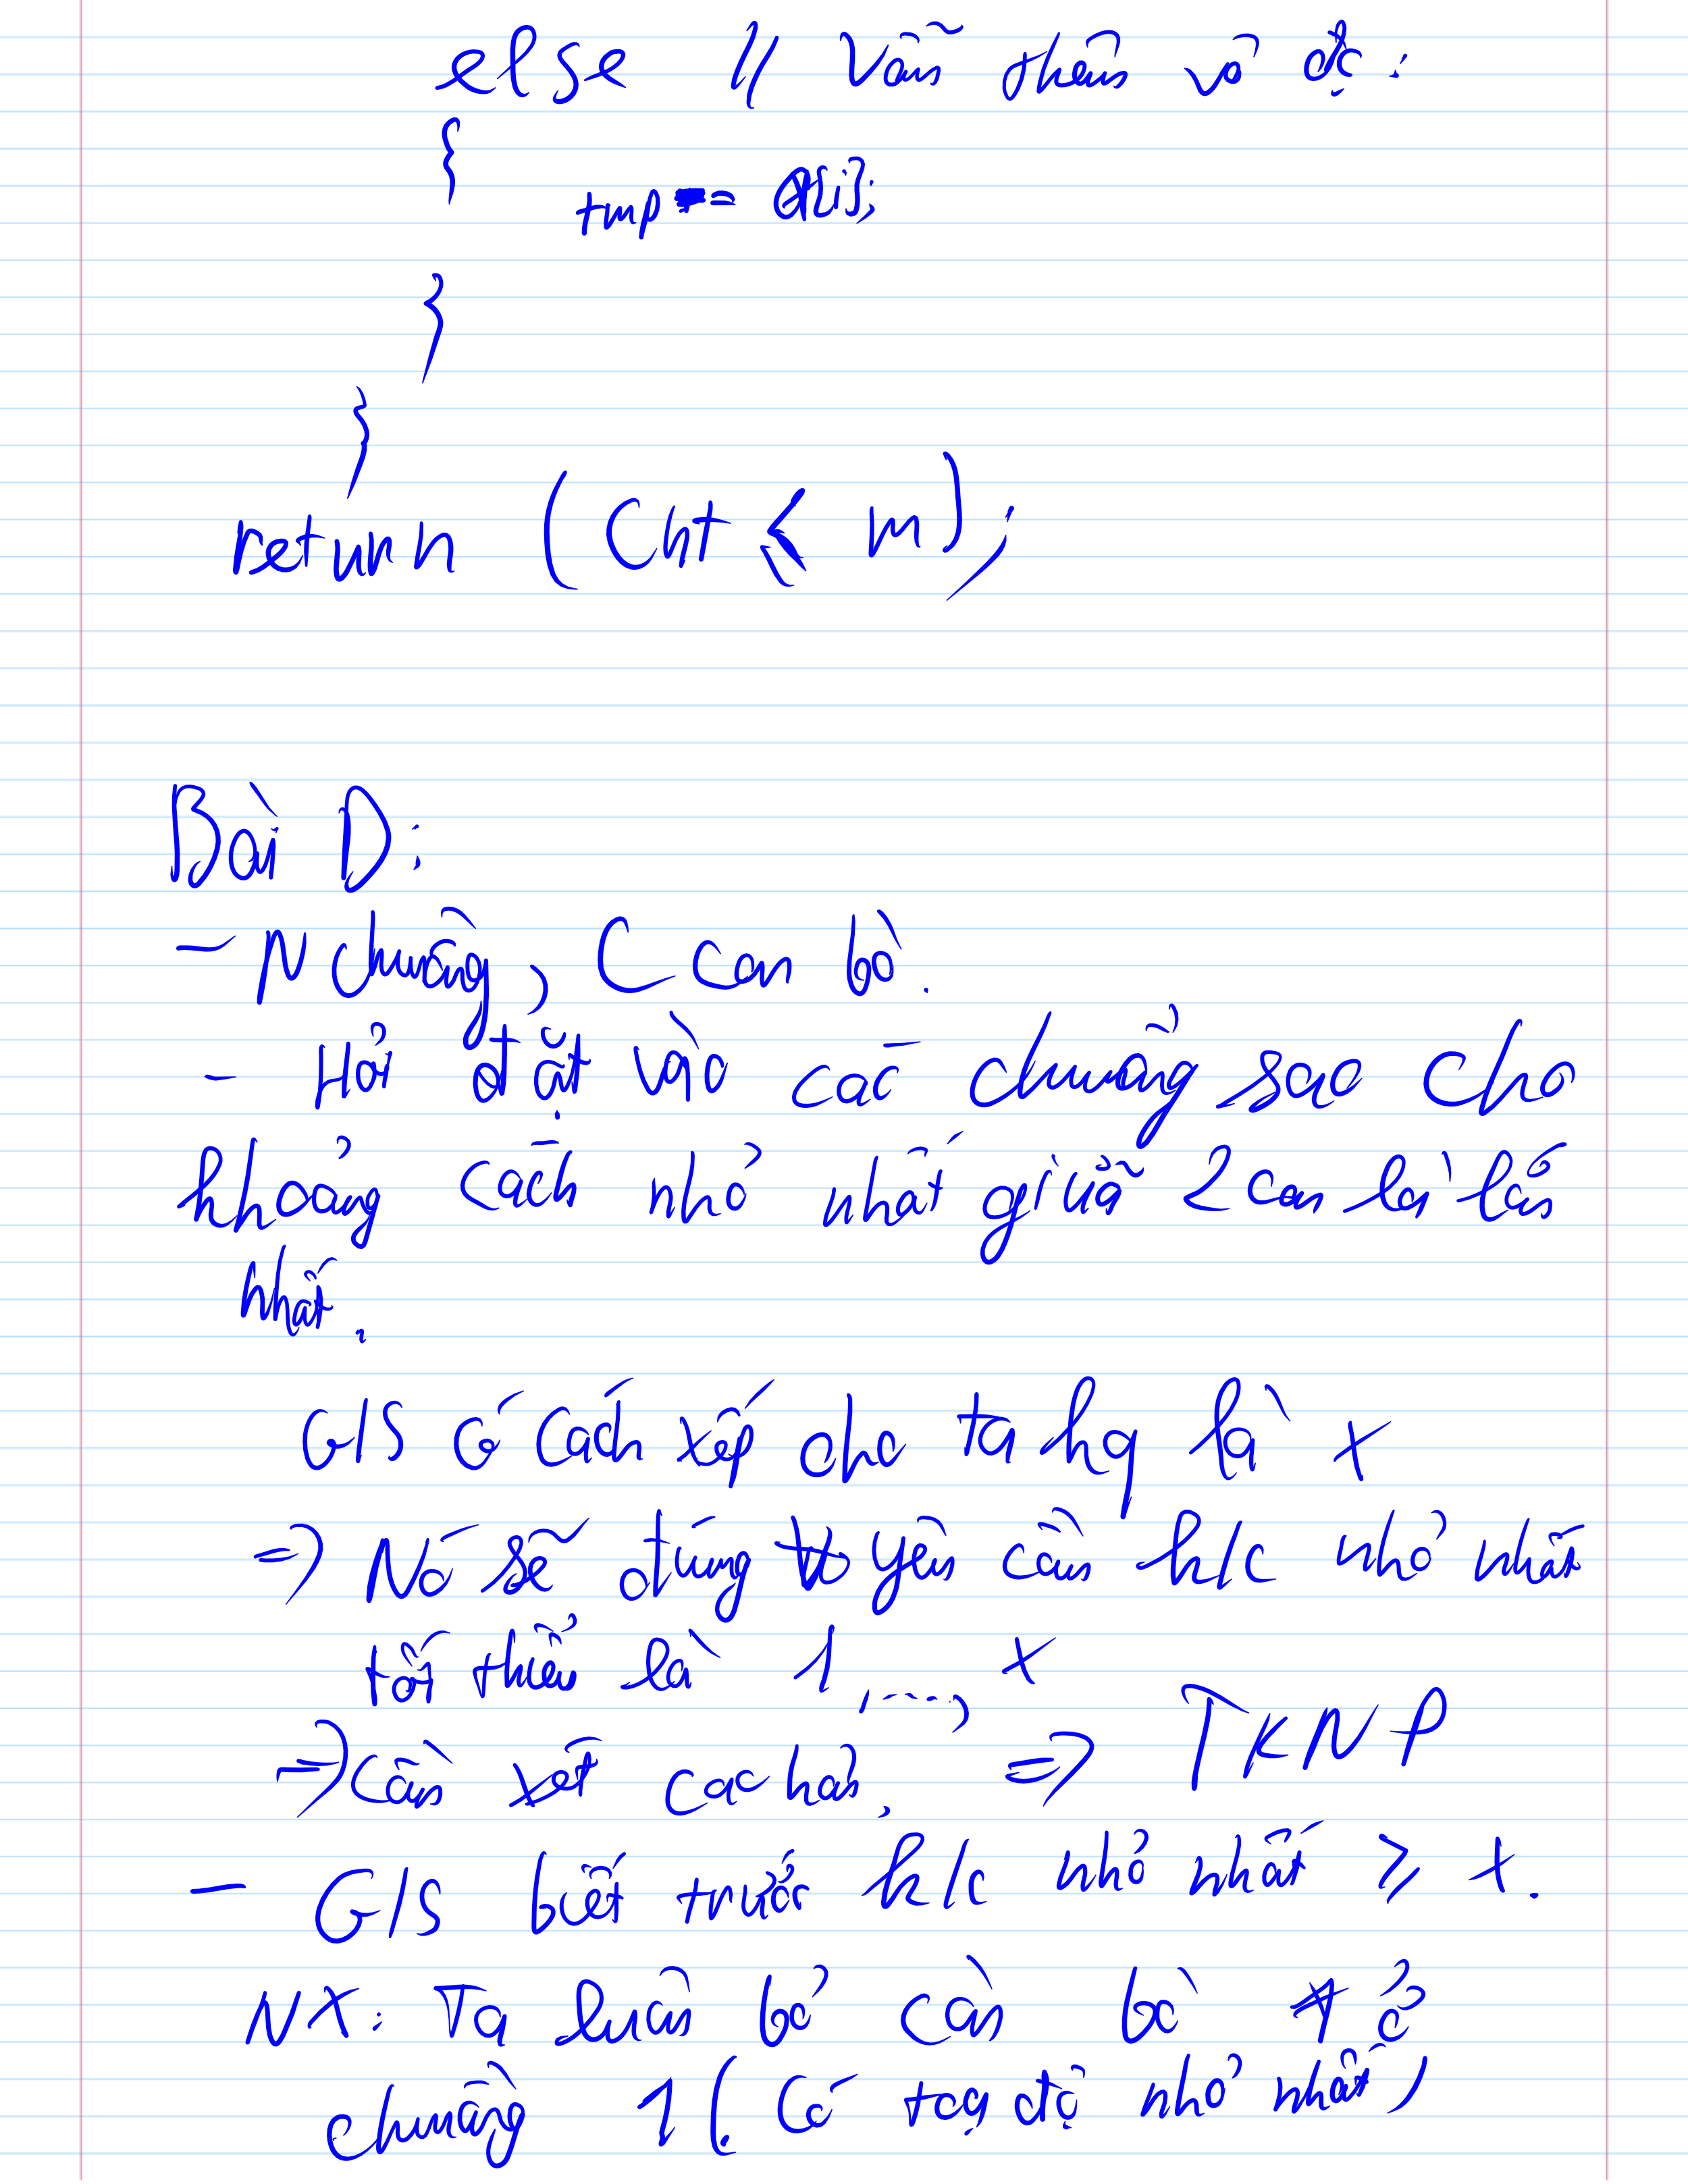 else // Vẫn thêm vô đc.
{
tmp += A[i];
}
}
return (Cnt ≤ m);
Bài D:
- N chuồng, C con bò.
- Hỏi đặt vào các chuồng sao cho
khoảng cách nhỏ nhất giữa 2 con là lớn
nhất.
G/S có cách xếp cho ta kq là x
=> Nó sẽ đúng yêu cầu k/c nhỏ nhất
tối thiểu là 1, ...., x
=> Cần xét cao hơn. => TKNP
- G/S biết trước k/c nhỏ nhất ≥ x.
NX: Ta luôn bỏ còn bò 1 ở
chuồng 1 (Có tọa độ nhỏ nhất)